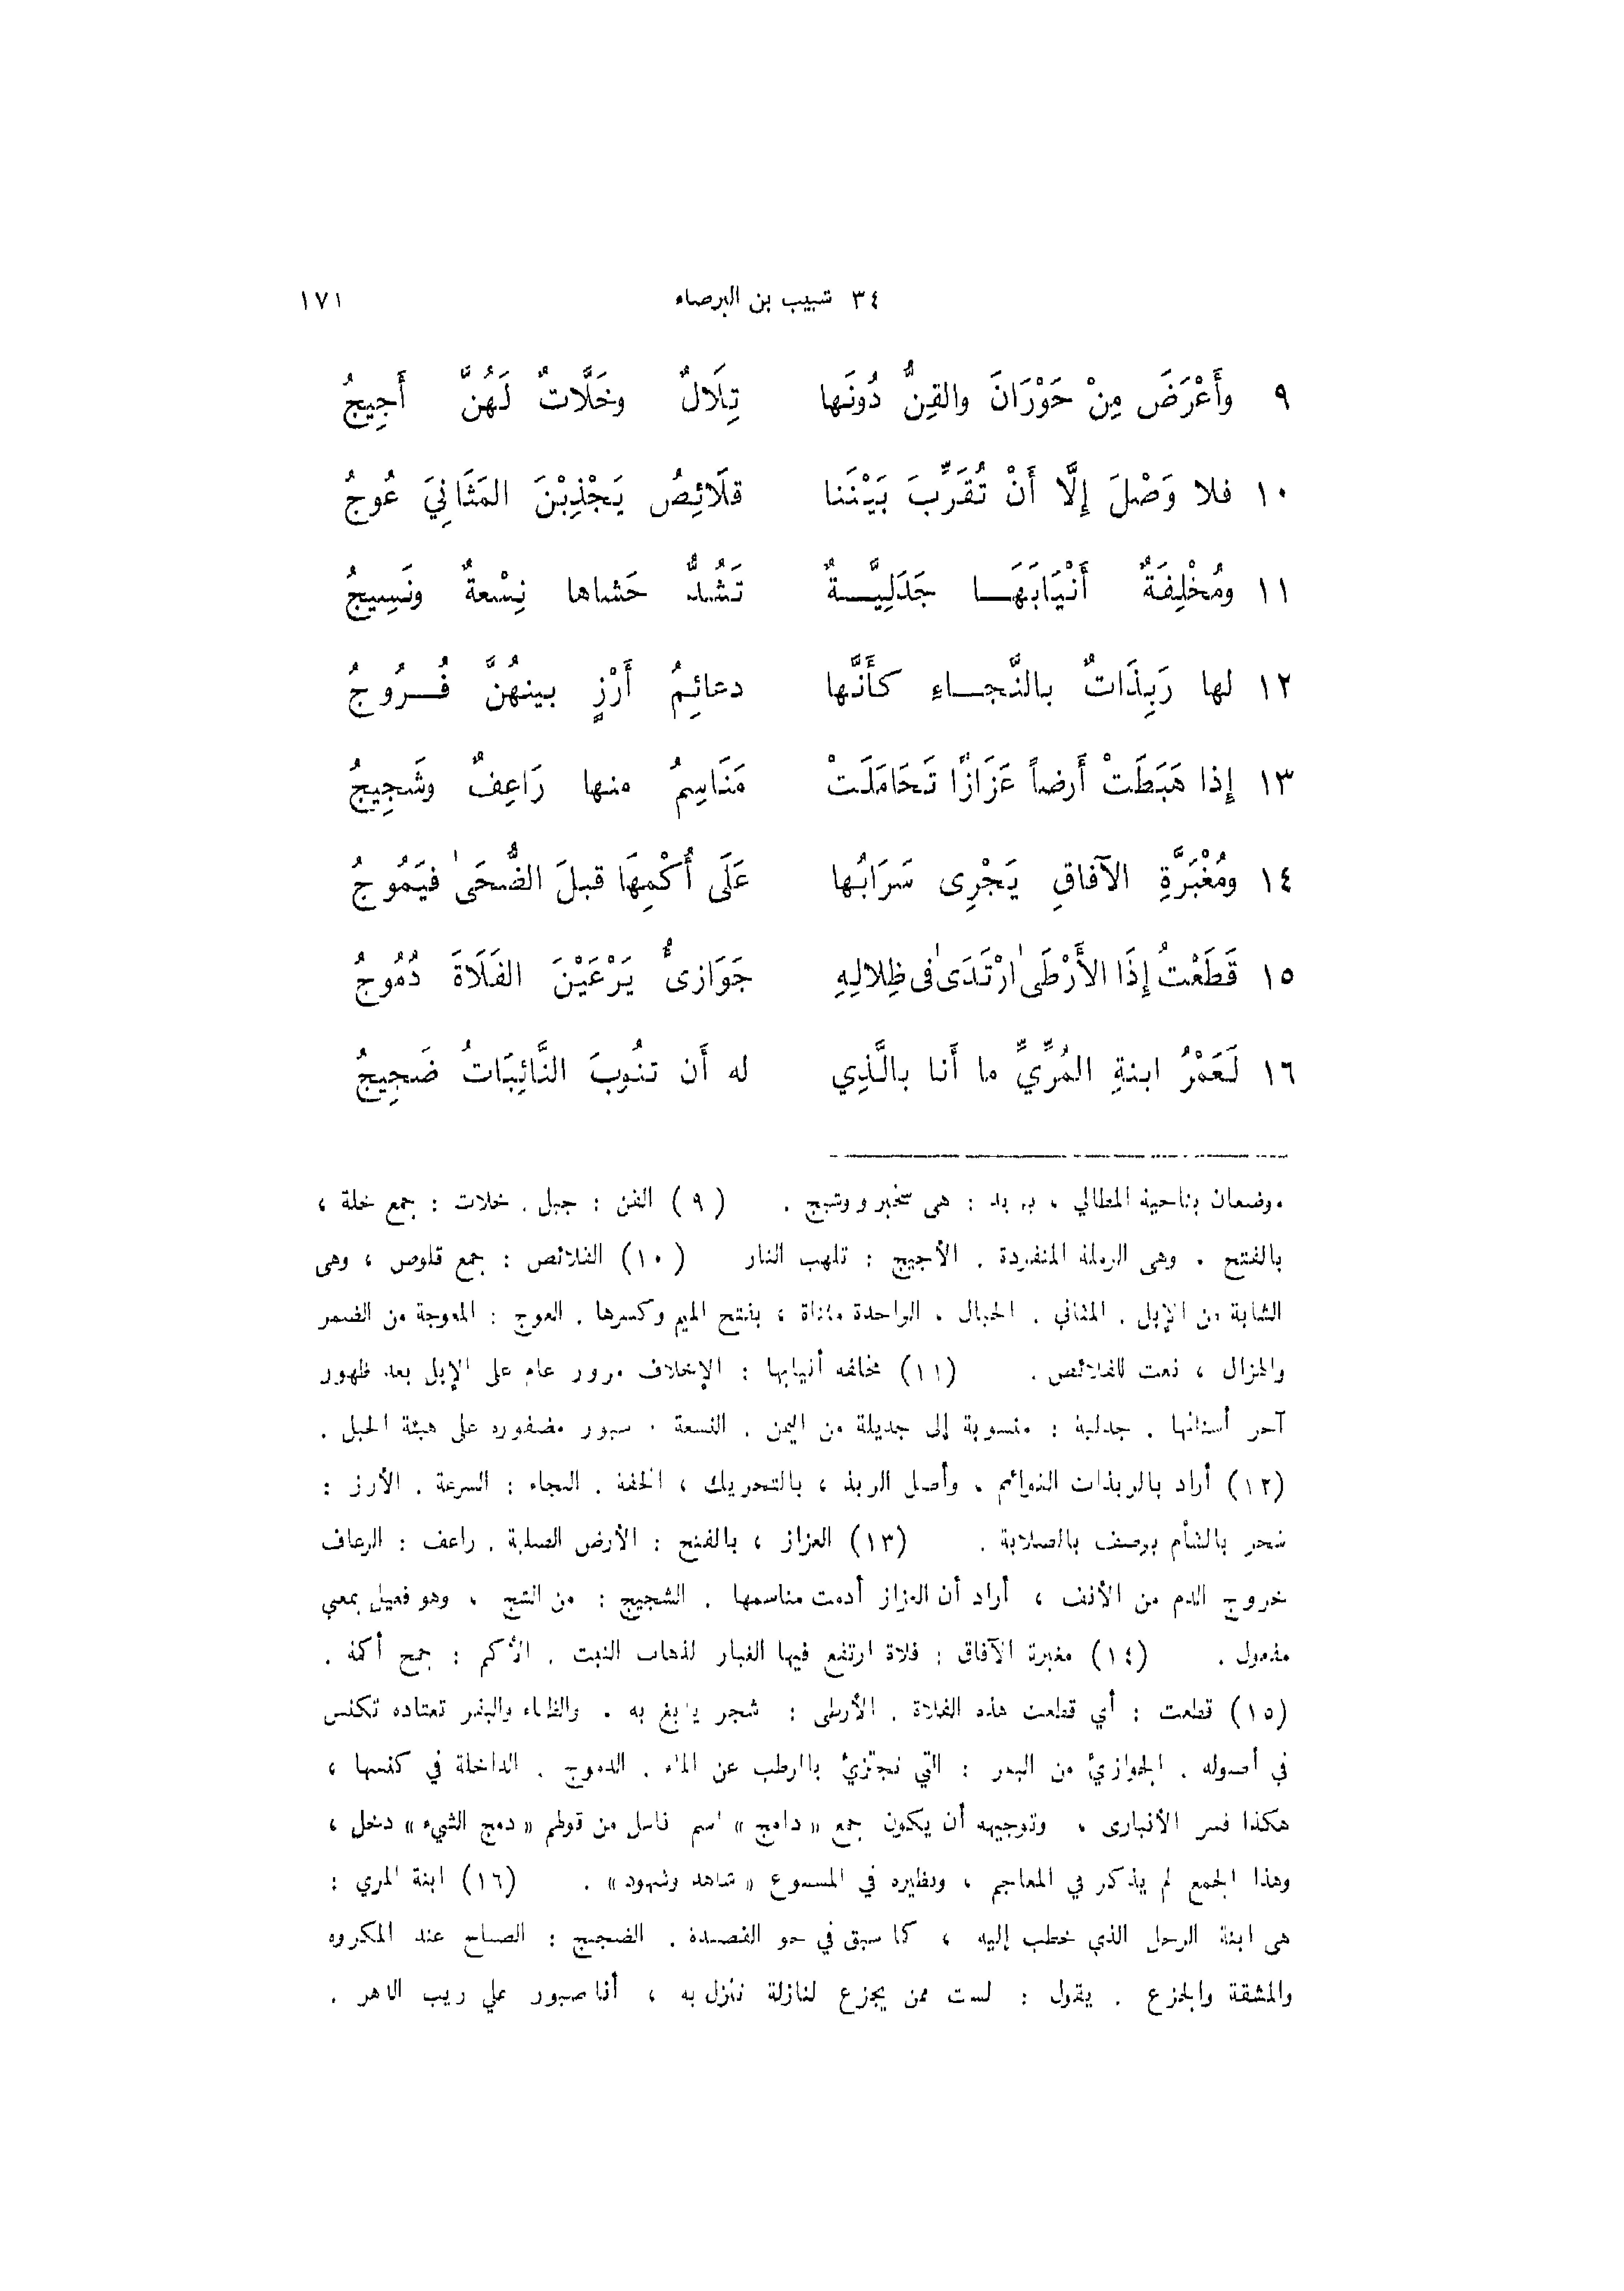 ٣٤ شبيب بن البرصاء ١٧١
٩ وأَعْرَضَ مِنْ حَوْرَانَ والقِنُّ دُونَها تِلَالٌ وخَلَّاتٌ لَهُنَّ أَجِيجُ
١٠ فلا وَصْلَ إِلَّا أَنْ تُقَرِّبَ بَيْنَنا قلَائِصُ يَجْذِبْنَ المَثَانِيَ عُوجُ
١١ ومُخْلِفَةٌ أَنْيَابَهَا جَدَلِيَّةٌ تَشُدُّ حَشاها نِسْعةٌ ونَسِيجُ
١٢ لها رَبِذَاتٌ بالنَّجاءِ كأَنَّها دعائِمُ أَرْزٍ بينهُنَّ فُرُوجُ
١٣ إِذا هَبَطَتْ أَرضاً عَزَازًا تَحَامَلَتْ مَنَاسِمُ منها رَاعِفٌ وشَجِيجُ
١٤ ومُغْبَرَّةِ الآفاقِ يَجْرِى سَرَابُها عَلَى أُكْمِهَا قبلَ الضُّحَىٰ فيَمُوجُ
١٥ قَطَعْتُ إِذَا الأَرْطَىٰ ارْتَدَىٰ فى ظِلالِهِ جَوَازىُّ يَرْعَيْنَ الفَلَاةَ دُمُوجُ
١٦ لَعَمْرُ ابنةِ المُرِّيِّ ما أَنا بالَّذِي له أَن تنُوبَ النَّائِبَاتُ ضَجِيجُ
موضعان بناحية المطالي ، يريد : هى سخبر ووشيج . (٩) القن : جبل . خلات : جمع خلة ،
بالفتح . وهى الرملة المنفردة . الأجيج : تلهب النار (١٠) القلائص : جمع قلوص ، وهى
الشابة من الإبل . المثاني . الحبال ، الواحدة مثناة ، بفتح الميم وكسرها . العوج : المعوجة من الضمر
والهزال ، نعت للقلائص . (١١) مخلفه أنيابها : الإخلاف مرور عام على الإبل بعد ظهور
آخر أسنانها . جدلية : منسوبة إلى جديلة من اليمن . النسعة . سيور مضفوره على هيئة الحبل .
(١٢) أراد بالربذات القوائم ، وأصل الربذ ، بالتحريك ، الخفة . النجاء : السرعة . الأرز :
شجر بالشأم يوصف بالصلابة . (١٣) العزاز ، بالفتح : الأرض الصلبة . راعف : الرعاف
خروج الدم من الأنف ، أراد أن العزاز أدمت مناسمها . الشجيج : من الشج ، وهو فعيل بمعنى
مفعول . (١٤) مغبرة الآفاق : فلاة ارتفع فيها الغبار لذهاب النبت . الأكم : جمع أكمة .
(١٥) قطعت : أي قطعت هذه الفلاة . الأرطى : شجر يدبغ به . والظباء والبقر تعتاده تكنس
في أصوله . الجوازئ من البقر : التي تجتزئ بالرطب عن الماء . الدموج . الداخلة في كنسها ،
هكذا فسر الأنبارى ، وتوجيهه أن يكون جمع « دامج » اسم فاعل من قولهم « دمج الشيء » دخل ،
وهذا الجمع لم يذكر في المعاجم ، ونظيره في المسموع « شاهد وشهود » . (١٦) ابنة المري :
هى ابنة الرجل الذي خطب إليه ، كما سبق في جو القصيدة . الضجيج : الصياح عند المكروه
والمشقة والجزع . يقول : لست ممن يجزع لنازلة تنزل به ، أنا صبور علي ريب الدهر .